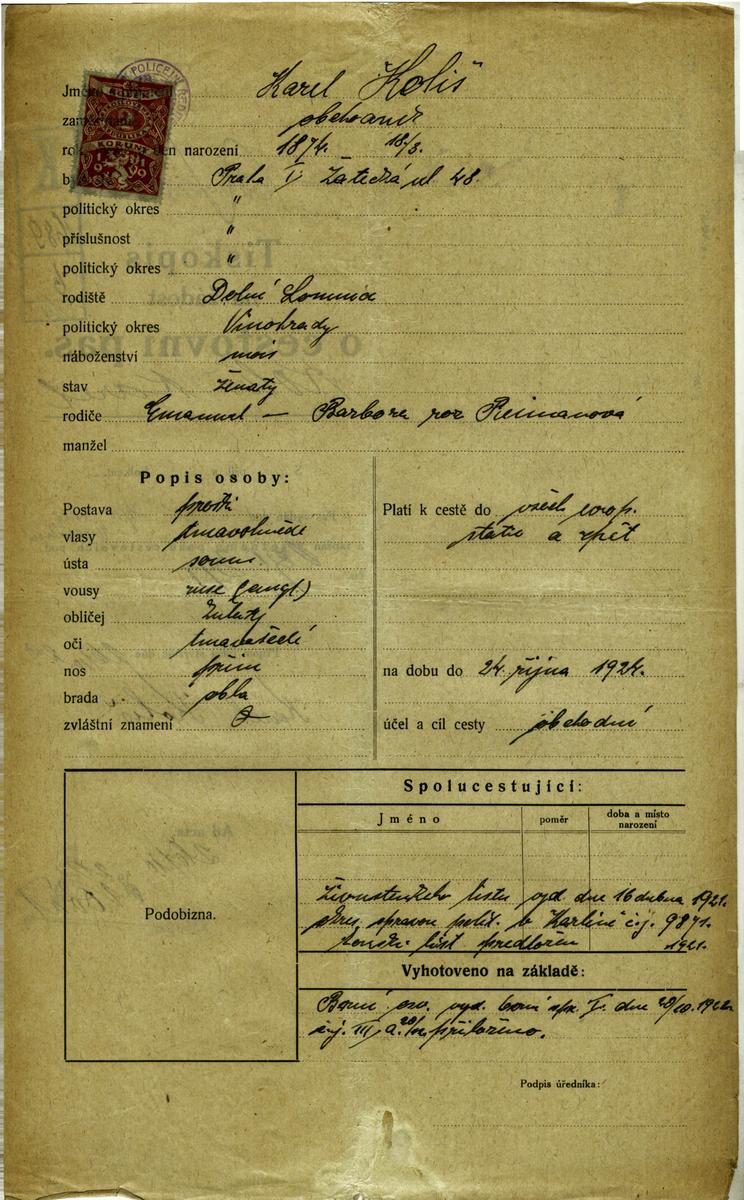 Jméno Karel Koliš
obchodník
rok den narození 1874. 18/3.
Praha V Žatecká ul 48.
politický okres "
příslušnost "
politický okres "
rodiště Dolní Lomnice
politický okres Vinohrady
náboženství mois
stav ženatý
rodiče Emanuel — Barbora roz Reimanová
manžel
Popis osoby:
Postava prostř.
vlasy tmavohnědé
ústa soum.
vousy (angl.)
obličej kulatý
oči tmavošedé
nos přím
brada oblá
zvláštní znamení
Platí k cestě do všech evrop.
států a zpět
na dobu do 24. října 1924.
účel a cíl cesty obchodní
Podobizna.
Spolucestující:
Jméno poměr doba a místo narození
Živnostenského listu vyd. dne 16 dubna 1921.
okres. správou polit. v Karlíně č.j. 9871.
list předložen 1921.
Vyhotoveno na základě:
vyd. dne 20/10. 1922
č.j. III přiloženo.
Podpis úředníka: